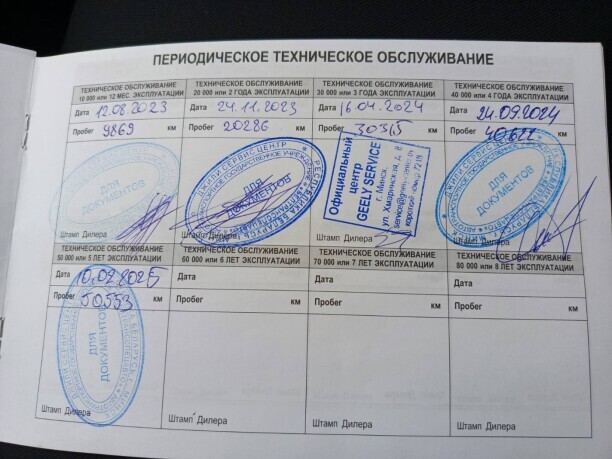 ПЕРИОДИЧЕСКОЕ ТЕХНИЧЕСКОЕ ОБСЛУЖИВАНИЕ
ТЕХНИЧЕСКОЕ ОБСЛУЖИВАНИЕ
10 000 или 12 МЕС. ЭКСПЛУАТАЦИИ
Дата 12.08.2023
Пробег 9869 км
ДЛЯ
ДОКУМЕНТОВ
Штамп Дилера
ТЕХНИЧЕСКОЕ ОБСЛУЖИВАНИЕ
20 000 или 2 ГОДА ЭКСПЛУАТАЦИИ
Дата 24.11.2023
Пробег 20286 км
ДЖИЛИ СЕРВИС ЦЕНТР
ДЛЯ
ДОКУМЕНТОВ
Дилера
ТЕХНИЧЕСКОЕ ОБСЛУЖИВАНИЕ
30 000 или 3 ГОДА ЭКСПЛУАТАЦИИ
Дата 16.04.2024
Пробег км
Официальный
центр
GEELY SERVICE
г. Минск,
Штамп Дилера
ТЕХНИЧЕСКОЕ ОБСЛУЖИВАНИЕ
40 000 или 4 ГОДА ЭКСПЛУАТАЦИИ
Дата 24.09.2024
Пробег 40622 км
ДЖИЛИ СЕРВИС ЦЕНТР
ДЛЯ
ДОКУМЕНТОВ
Штамп Дилера
ТЕХНИЧЕСКОЕ ОБСЛУЖИВАНИЕ
50 000 или 5 ЛЕТ ЭКСПЛУАТАЦИИ
Дата 10.02.2025
Пробег 50553 км
ДЛЯ
ДОКУМЕНТОВ
Штамп Дилера
ТЕХНИЧЕСКОЕ ОБСЛУЖИВАНИЕ
60 000 или 6 ЛЕТ ЭКСПЛУАТАЦИИ
Дата
Пробег км
Штамп Дилера
ТЕХНИЧЕСКОЕ ОБСЛУЖИВАНИЕ
70 000 или 7 ЛЕТ ЭКСПЛУАТАЦИИ
Дата
Пробег км
Штамп Дилера
ТЕХНИЧЕСКОЕ ОБСЛУЖИВАНИЕ
80 000 или 8 ЛЕТ ЭКСПЛУАТАЦИИ
Дата
Пробег км
Штамп Дилера